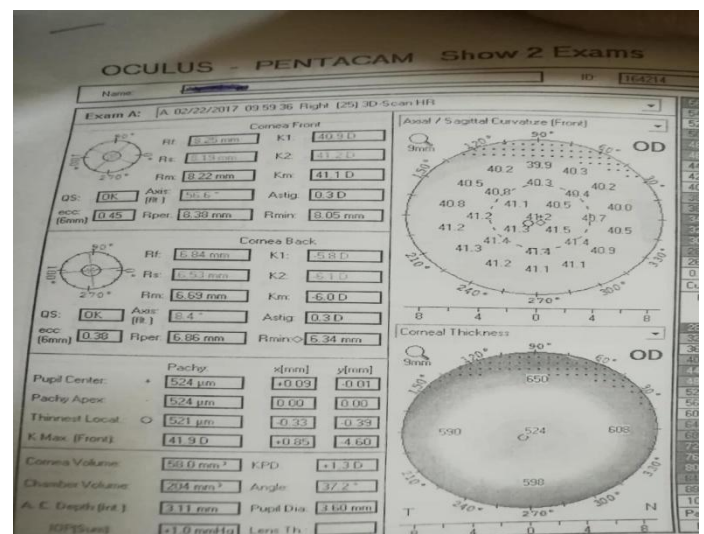 OCULUS - PENTACAM Show 2 Exams
Name: ID: 164214
Exam A: A 02/22/2017 09:59:36 Right (25) 3D-Scan HR
Cornea Front
90°
180°
270°
Rf: 8.25 mm K1: 40.9 D
Rs: 8.19 mm K2: 41.2 D
Rm: 8.22 mm Km: 41.1 D
QS: OK Axis: (flt.) 56.6 ° Astig: 0.3 D
ecc: (6mm) 0.45 Rper: 8.38 mm Rmin: 8.05 mm
Cornea Back
90°
180°
270°
Rf: 6.84 mm K1: -5.8 D
Rs: 6.53 mm K2: -6.1 D
Rm: 6.69 mm Km: -6.0 D
QS: OK Axis: (flt.) 8.4 ° Astig: 0.3 D
ecc: (6mm) 0.38 Rper: 6.86 mm Rmin: 6.34 mm
Pachy: x[mm] y[mm]
Pupil Center: + 524 µm +0.09 -0.01
Pachy Apex: 524 µm 0.00 0.00
Thinnest Locat.: O 521 µm -0.33 -0.39
K Max. (Front): 41.9 D +0.85 -4.60
Cornea Volume: 58.0 mm³ KPD: +1.3 D
Chamber Volume: 204 mm³ Angle: 37.2 °
A. C. Depth (Int.): 3.11 mm Pupil Dia: 3.60 mm
IOP(Sum): +1.0 mmHg Lens Th.:
Axial / Sagittal Curvature (Front)
9mm 120° 90° 60° OD
150°
40.2 39.9 40.3
40.5 40.8 40.3 40.4 40.2
40.8 41.1 40.5 40.0
41.2 41.2 41.2 40.7
41.2 41.3 41.5 40.5
41.3 41.4 41.4 40.9
41.2 41.1 41.1
210° 330°
240° 270° 300°
8 4 0 4 8
Corneal Thickness
9mm 90° 60° OD
150°
650
590 524 608
598
210° 330°
240° 270° 300°
T N
8 4 0 4 8